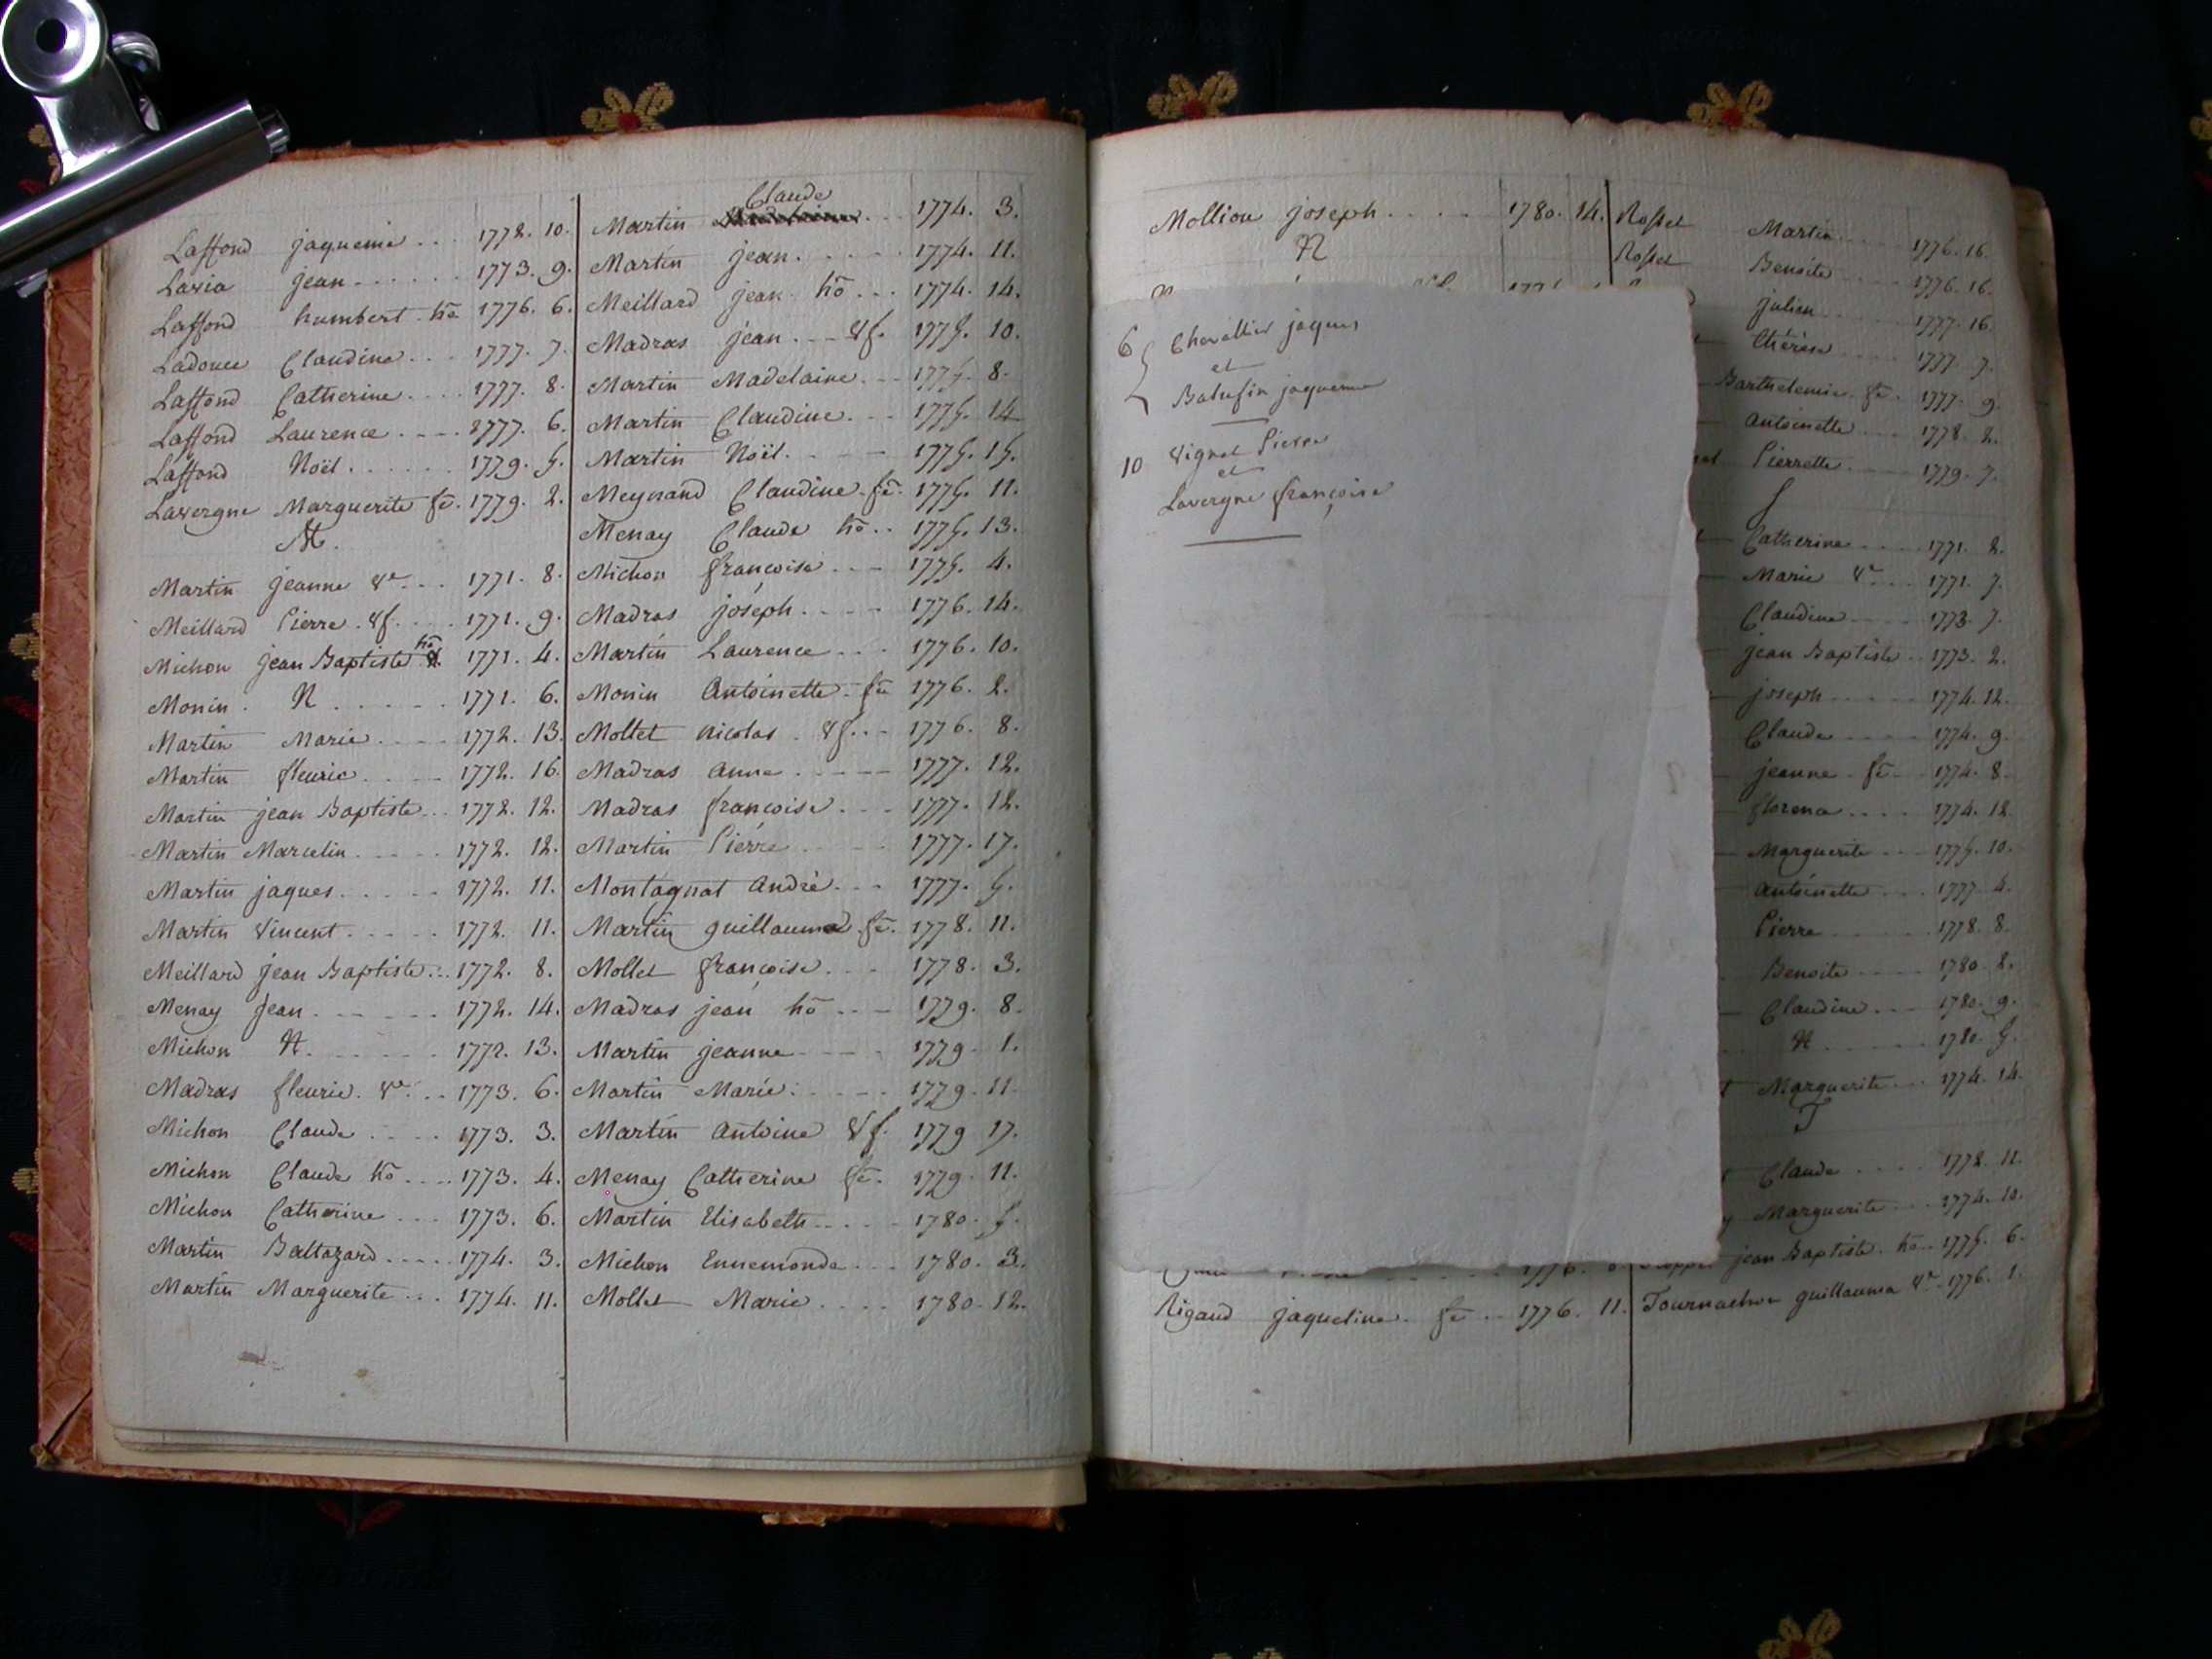 Laffond jaquemie 1772. 10.
Lavia jean 1773. 9.
Laffond humbert hõ 1776. 6.
Ladouce Claudine 1777. 7.
Laffond Catherine 1777. 8.
Laffond Laurence 1777. 6.
Laffond Noël 1779. 5.
Lavergne Marguerite fẽ. 1779. 2.
M.
Martin jeanne Ve 1771. 8.
Meillard Pierre Vf. 1771. 9.
Michon jean Baptiste hõ 1771. 4.
Monin. N 1771. 6.
Martin Marie 1772. 13.
Martin fleurie 1772. 16.
Martin jean Baptiste 1772. 12.
Martin Marcelin 1772. 12.
Martin jaques 1772. 11.
Martin Vincent 1772. 11.
Meillard jean Baptiste 1772. 8.
Menay jean 1772. 14.
Michon N. 1772. 13.
Madras fleurie. Ve 1773. 6.
Michon Claude 1773. 3.
Michon Claude hõ 1773. 4.
Michon Catherine 1773. 6.
Martin Baltazard 1774. 3.
Martin Marguerite 1774. 11.
Claude
Martin 1774. 3.
Martin jean 1774. 11.
Meillard jean hõ 1774. 14.
Madras jean Vf. 1775. 10.
Martin Madelaine 1775. 8.
Martin Claudine 1775. 14
Martin Noël 1775. 15.
Meynand Claudine fẽ. 1775. 11.
Menay Claude hõ 1775. 13.
Michon françoise 1775. 4.
Madras joseph 1776. 14.
Martin Laurence 1776. 10.
Monin Antoinette fẽ 1776. 2.
Mollet nicolas Vf. 1776. 8.
Madras Anne 1777. 12.
Madras françoise 1777. 12.
Martin Pierre 1777. 17.
Montagnat André 1777. 5.
Martin guillaume fẽ. 1778. 11.
Mollet françoise 1778. 3.
Madras jean hõ 1779. 8.
Martin jeanne 1779. 1.
Martin Marie 1779. 11.
Martin Antoine Vf. 1779 17.
Menay Catherine fẽ. 1779. 11.
Martin Elisabeth 1780. 5.
Michon Ennemonde 1780. 3.
Mollet Marie 1780. 12.
Mollion joseph 1780. 14.
N
6 Chevallier jaques
et
jaquemie
10 Vignat Pierre
et
Lavergne françoise
1776.
Rigaud jaqueline fẽ 1776. 11.
Rosset Martin 1776. 16.
Rosset Benoite 1776. 16.
julien 1777. 16.
Thérèse 1777. 7.
Barthelemie fẽ. 1777. 9.
Antoinette 1778. 2.
Pierrette 1779. 7.
S
Catherine 1771. 2.
Marie Ve 1771. 7.
Claudine 1773. 7.
jean Baptiste 1773. 2.
joseph 1774. 12.
Claude 1774. 9.
jeanne fẽ 1774. 8.
florence 1774. 12.
Marguerite 1775. 10.
Antoinette 1777. 4.
Pierre 1778. 8.
Benoite 1780. 2.
Claudine 1780. 9.
N 1780. 5.
Marguerite 1774. 14.
T
Claude 1772. 11.
Marguerite 1774. 10.
jean Baptiste. hõ 1775. 6.
Tournachon guillauma Ve. 1776. 1.